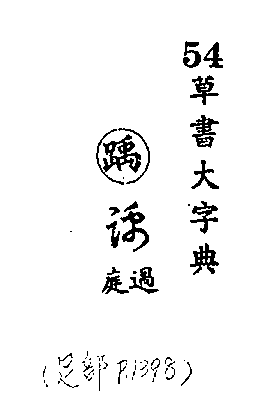 54草書大字典
踽
過庭
(足部 P.1398)